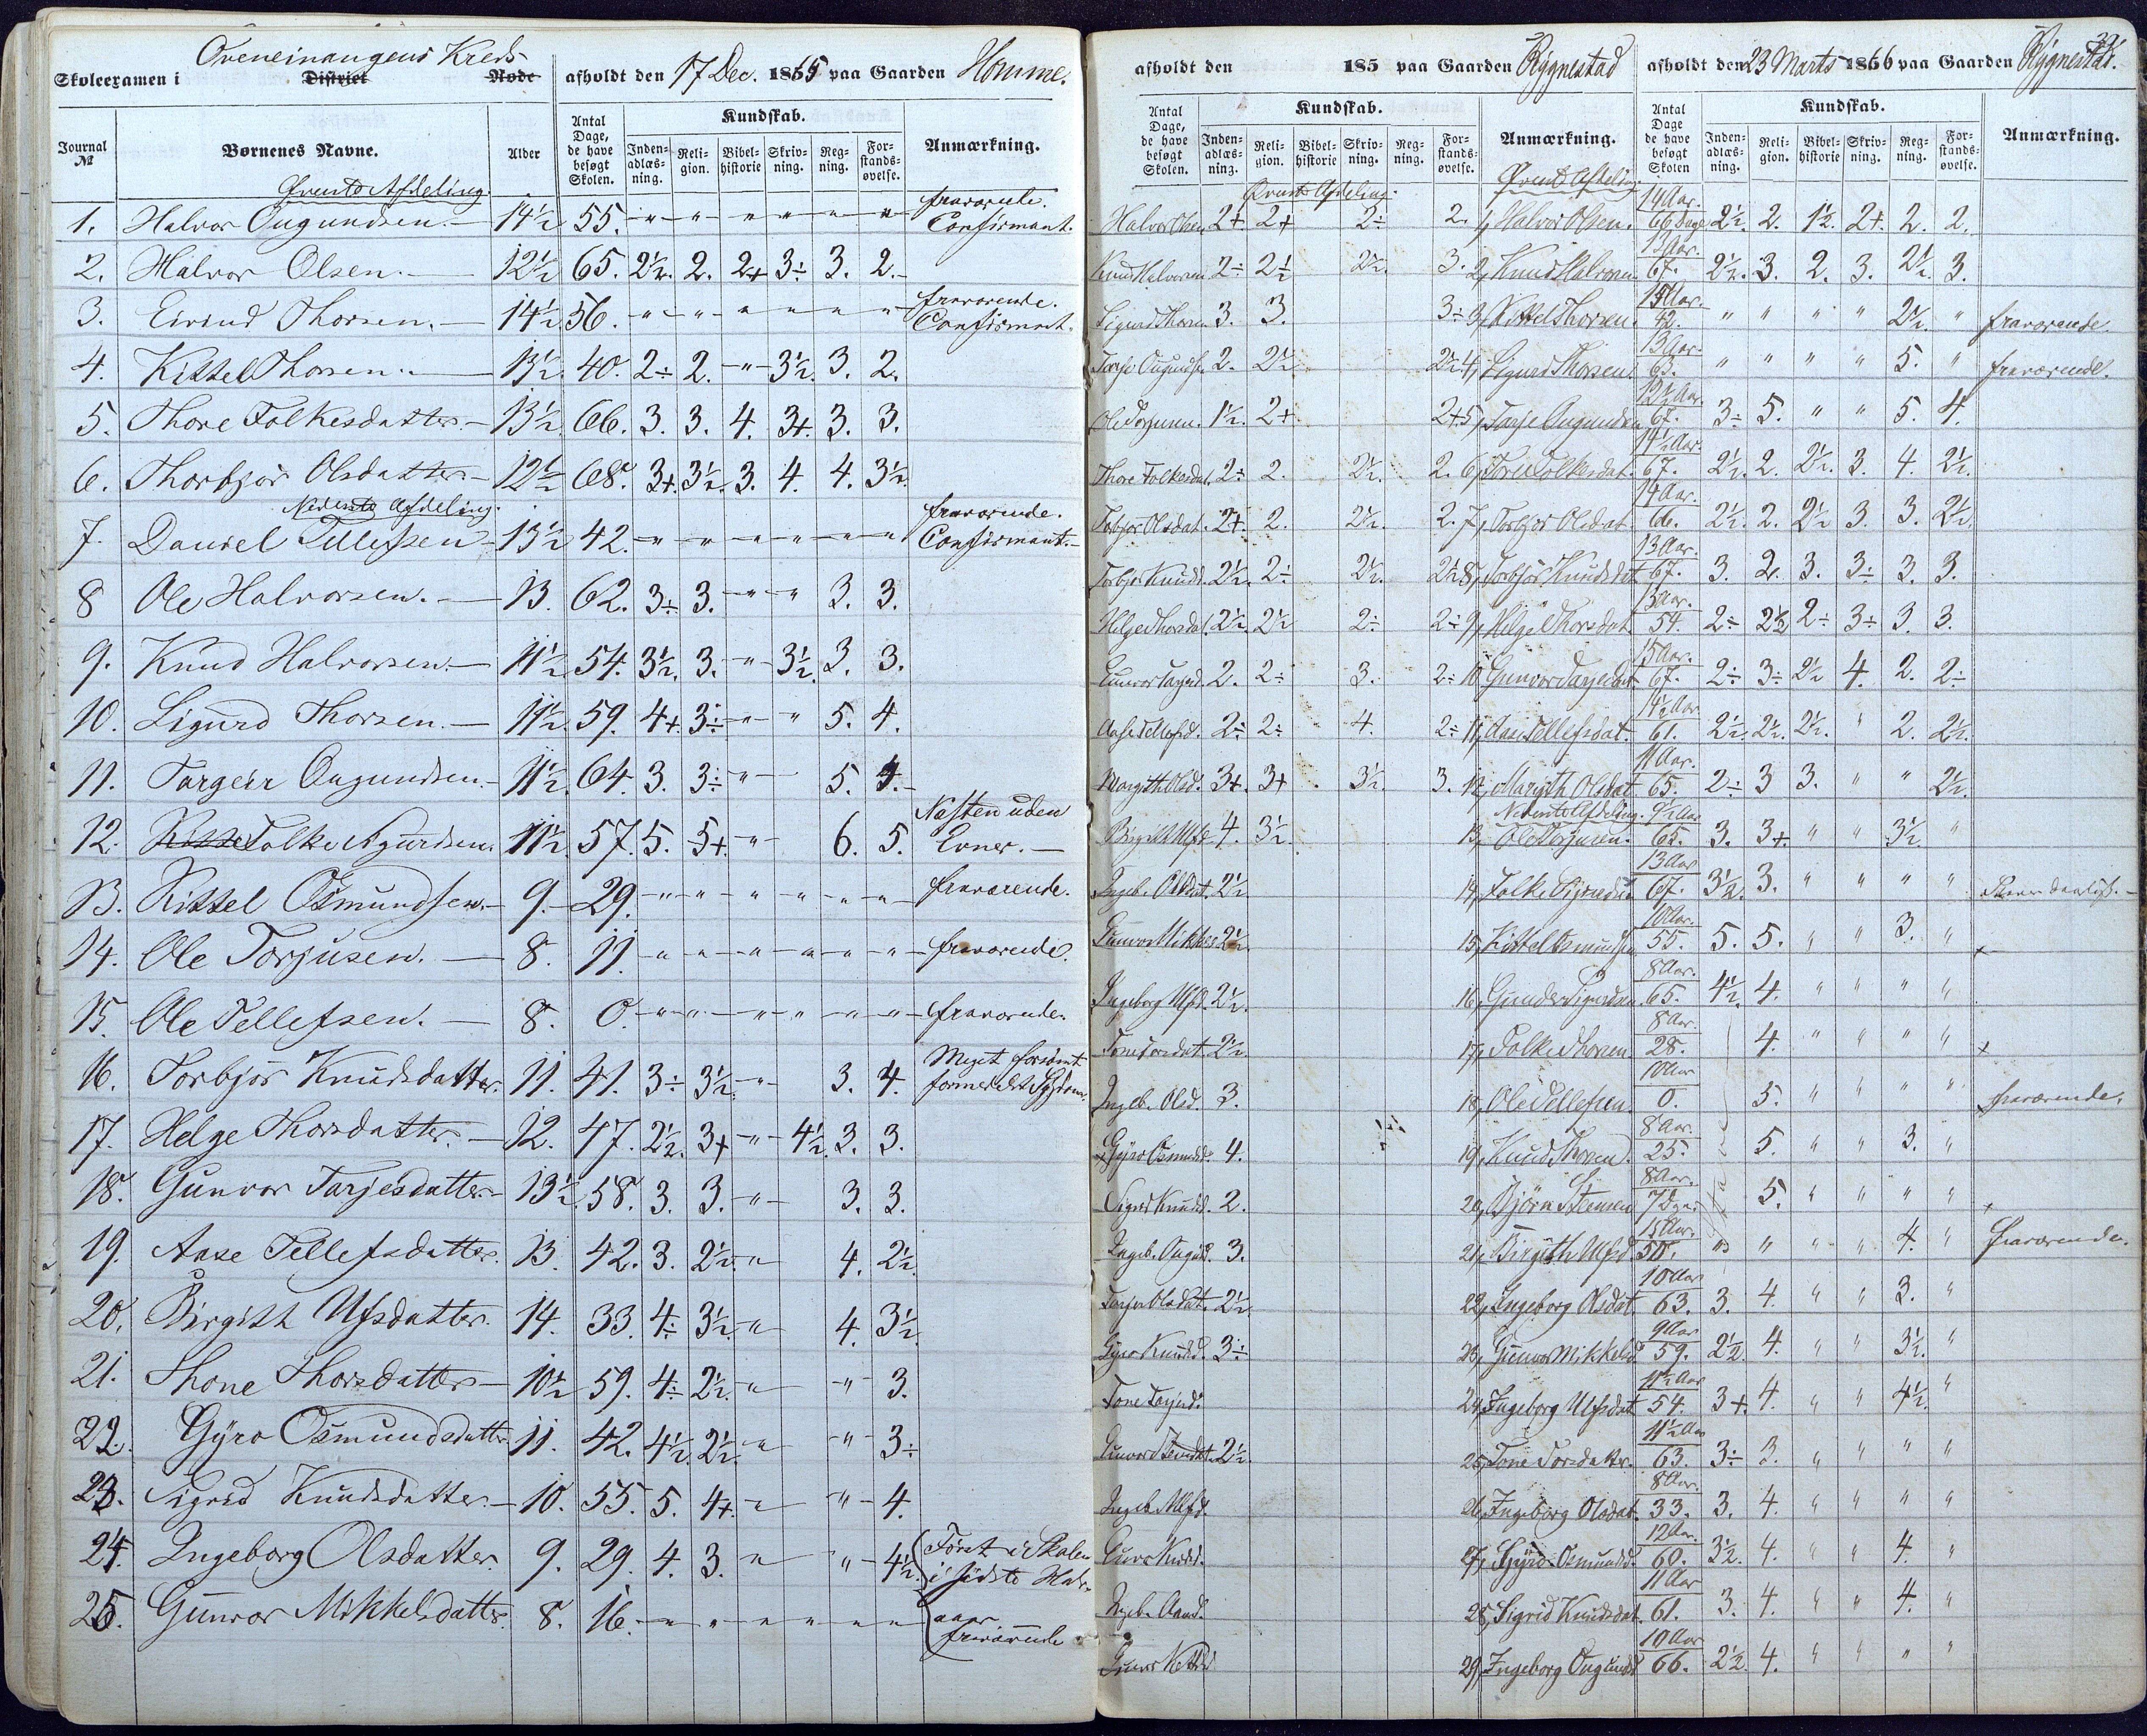 Oveneinangens Kreds
Skoleexamen i District Rode afholdt den 17 Dec. 1865 paa Gaarden Homme.
Journal № Børnenes Navne. Alder Antal Dage, de have besøgt Skolen. Kundskab. Inden-adlæs-ning. Reli-gion. Bibel-historie Skriv-ning. Reg-ning. For-stands-øvelse. Anmærkning.
Øverste Afdeling.
1. Halvor Ougundsen. 14½ 55. " " " " " " fraværende. Confirmant.
2. Halvor Olsen. 12½ 65. 2½. 2. 2+ 3÷ 3. 2.
3. Eivind Thorsen. 14½ 56. " " " " " " fraværende. Confirmant.
4. Kittel Thorsen. 13½ 40. 2÷ 2. " 3½. 3. 2.
5. Thore Folkesdatter. 13½. 66. 3. 3. 4. 3+. 3. 3.
6. Thorbjør Olsdatter 12½ 68. 3+. 3½. 3. 4. 4. 3½.
Nederste Afdeling.
7. Daniel Tellefsen 15½ 42. " " " " " " fraværende. Confirmant.
8 Ole Halvorsen. 13. 62. 3÷ 3. " " 3. 3.
9. Knud Halvorsen. 11½ 54. 3½. 3. " 3½. 3. 3.
10. Sigurd Thorsen. 11½. 59. 4+. 3÷ " " 5. 4.
11. Targeir Ougundsen. 11½. 64. 3. 3÷ " 5. 4.
12. Folke Sigurdsen. 11½. 57. 5. 5+. " 6. 5. Næsten uden Evner.
13. Kittel Osmundsen. 9. 29. " " " " " " fraværende.
14. Ole Torjusen. 8. 11. " " " " " " fraværende.
15. Ole Tellefsen. 8. 0. " " " " " " fraværende.
16. Torbjør Knudsdatter. 11. 41. 3÷ 3½. " 3. 4. Meget forsømt formedelst Sygdom.
17. Helge Thorsdatter. 12. 47. 2½. 3+ " 4½. 3. 3.
18. Gunvor Tarjesdatter. 13½. 58. 3. 3. " 3. 3.
19. Aase Tellefsdatter. 13. 42. 3. 2½. " 4. 2½.
20. Birgith Ulfsdatter. 14. 33. 4÷ 3½. " 4. 3½.
21. Thone Thorsdatter 10½ 59. 4÷ 2½. " " 3.
22. Gÿro Osmundsdatter. 11. 42. 4½. 2½. " " 3÷
23. Sigrid Knudsdatter. 10. 55. 5. 4+. " " 4.
24. Ingeborg Olsdatter. 9. 29. 4. 3. " " 4½. Først i Skolen i sidste Halv-
25. Gunvor Mikkelsdatter. 8. 16. " " " " " " aar fraværende
afholdt den 185 paa Gaarden Rÿgnestad
Antal Dage, de have besøgt Skolen. Kundskab. Inden-adlæs-ning. Reli-gion. Bibel-historie Skriv-ning. Reg-ning. For-stands-øvelse. Anmærkning.
Øverste Afdeling.
Halvor Olsen 2+. 2+ 2÷ 2.
Knud Halvorsen 2÷ 2½ 2½. 3.
Sigurd Thorsen 3. 3. 3÷
Tarje Ougunds. 2. 2½ 2½
Ole Torjusen. 1½. 2+. 2+.
Thore Folkesdat. 2÷ 2. 2½. 2.
Torbjør Olsdat. 2+. 2. 2½. 2.
Torbjør Knudsd. 2½. 2÷ 2½. 2½
Helge Thorsdat. 2½. 2½ 2÷ 2÷
Gunvor Tarjesd. 2. 2÷ 3. 2÷
Aase Tellefsd. 2÷ 2÷ 4. 2÷
Margith Olsd. 3+. 3+ 3½. 3.
Birgith Ulfsd. 4. 3½.
Ingeb. Olsdat. 2½.
Gunvor Mikkels. 2½.
Ingeborg Ulfsd. 2½.
Tone Torsdat. 2½.
Ingeb. Olsd. 3.
Gÿro Osmundsd. 4.
Sigrid Knudsd. 2.
Ingeb. Ougunds. 3.
Torjer Olsdat. 2½.
Gÿro Knudsd. 3÷
Tone Tarjesd.
Gunvor 2½.
Ingeb. Ulfsd.
Ingeb.
afholdt den 23 Marts 1866 paa Gaarden Rÿgnestad.
Antal Dage de have besøgt Skolen Kundskab. Inden-adlæs-ning. Reli-gion. Bibel-historie Skriv-ning. Reg-ning. For-stands-øvelse. Anmærkning.
Øverste Afdeling.
1, Halvor Olsen. 14 Aar. 66 Dage 2½. 2. 1½. 2+. 2. 2.
2, Knud Halvorsen 13 Aar. 67. 2½. 3. 2. 3. 2½. 3.
3, Kittel Thorsen. 15 Aar. 42. " " " " 2½. " fraværende
4, Sigurd Thorsen. 13 Aar. 63. " " " " 5. " fraværende.
5, Tarje Ougundsen 12½ Aar. 67. 3÷ 5. " " 5. 4.
6, Tore Folkesdat. 14½ Aar. 67. 2½. 2. 2½. 3. 4. 2½.
7, Torbjør Olsdat. 14 Aar. 66. 2½. 2. 2½ 3. 3. 2½.
8, Torbjør Knudsdat 13 Aar. 67. 3. 2. 3. 3÷ 3. 3.
9, Helge Thorsdat. 13 Aar. 54. 2÷ 2½ 2÷ 3÷ 3. 3.
10 Gunvor Tarjesdat. 15 Aar. 67. 2÷ 3÷ 2½ 4. 2. 2÷
11, Aase Tellefsdat. 14½ Aar 61. 2½. 2½. 2½. " 2. 2½.
12, Margith Olsdat 11 Aar. 65. 2÷ 3 3. " " 2½.
Nederste Afdeling.
13, Ole Torjusen. 9½ Aar 65. 3. 3+. " " 3½. "
14, Folke Sigurdsen 13 Aar 67. 3½. 3. " " " "
15, Kittel Osmundsen 10 Aar. 55. 5. 5. " " 3. "
16, Gunder Sigurdsen. 8 Aar. 65. 4½. 4. " " " "
17, Folke Thorsen 8 Aar. 28. 4. " " " " x
18, Ole Tellefsen. 10 Aar 0. 5. " " " " fraværende.
19, Knud Thorsen. 8 Aar. 25. 5. " " 3. "
20, Björn Steensen 8 Aar. 7 Dage 5. " " " " x
21, Birgith Ulfsd. 15 Aar. 50. " " " " 4. " fraværende.
22, Ingeborg Olsdat 10 Aar 63. 3. 4. " " 3. "
23, Gunvor Mikkelsd. 9 Aar 59. 2½. 4. " " 3½. "
24, Ingeborg Ulfsdat 11½ Aar 54. 3+. 4. " " 4½. "
25, Tone Torsdatter. 11½ Aar 63. 3÷ 3. " " " "
26, Ingeborg Olsdat. 8 Aar. 33. 3. 4. " " " "
27, Gÿro Osmundsd. 12 Aar. 60. 3½. 4. " " 4. "
28, Sigrid Knudsdat. 11 Aar 61. 3. 4. " " 4. "
29, Ingeborg Ougundsd 10 Aar 66. 2½. 4. " " " "